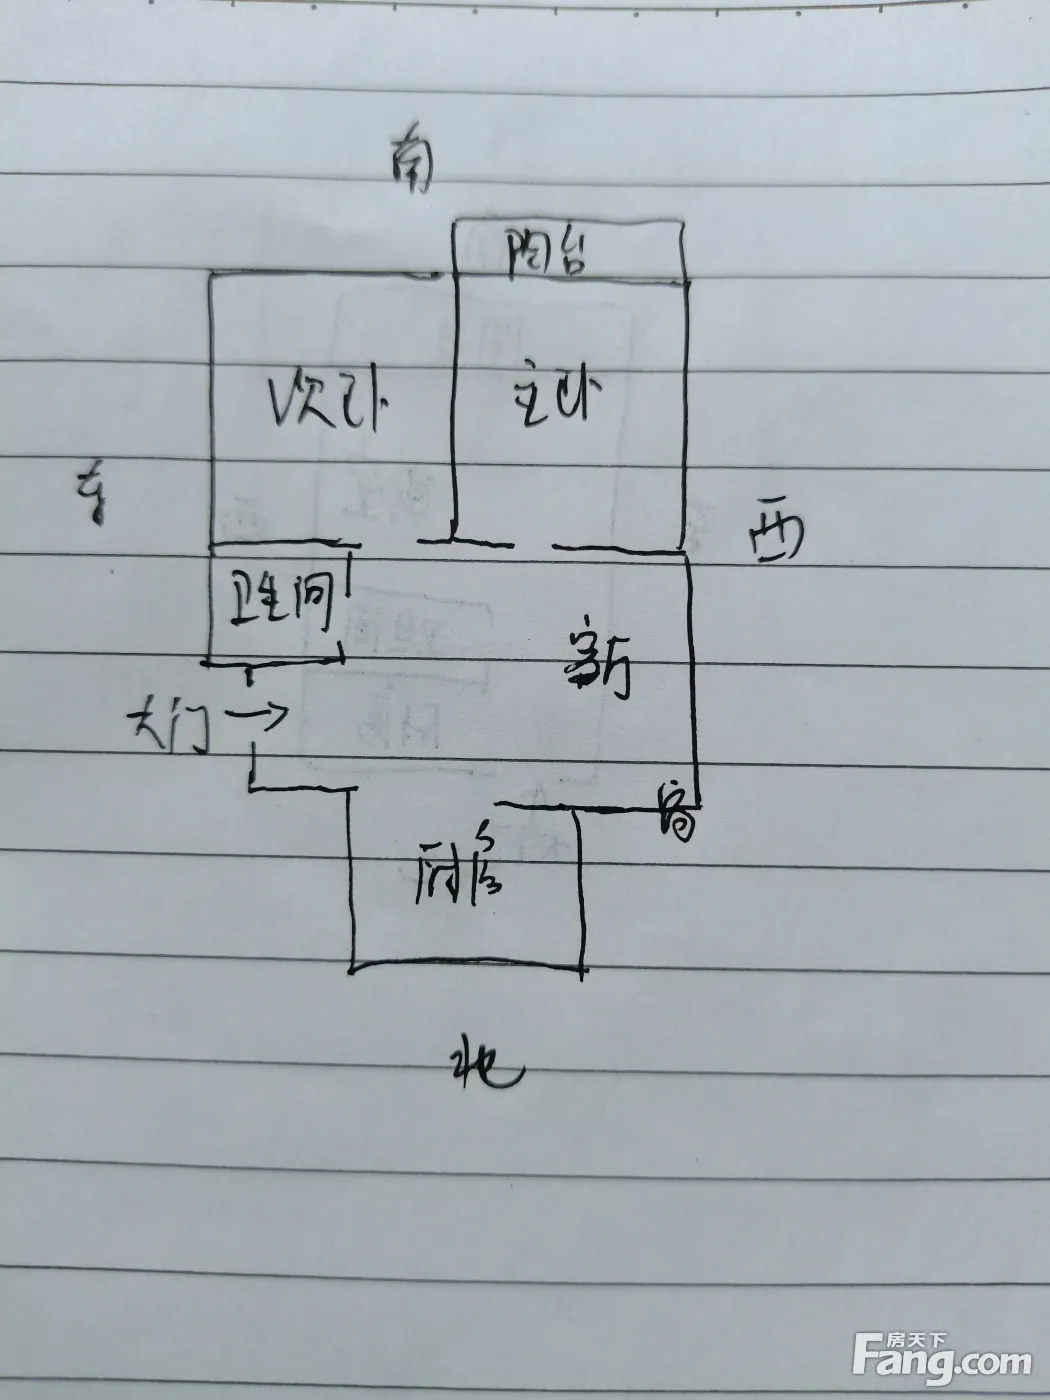 南
阳台
次卧
主卧
东
西
卫生间
客厅
大门
窗
厨房
北
房天下
Fang.com